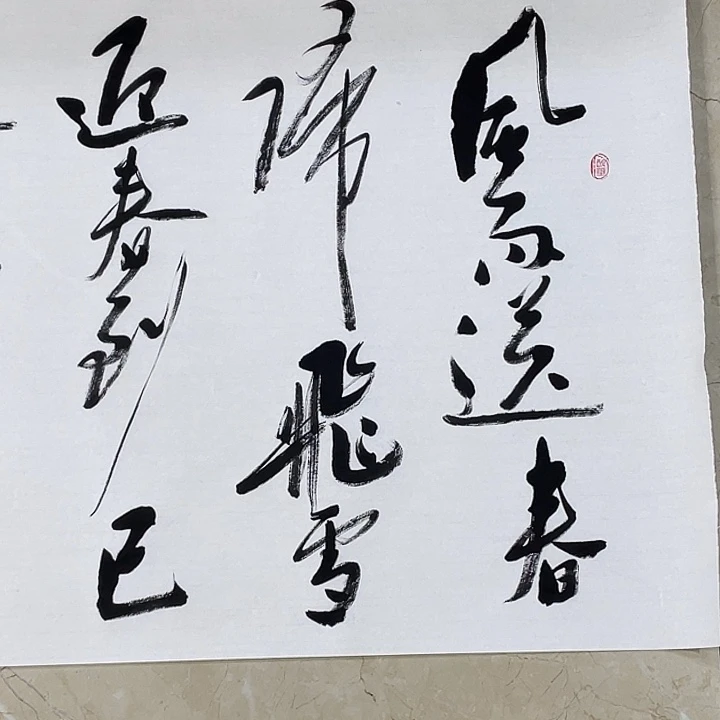 風雨送春
歸飛雪
迎春到已